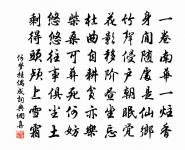 一卷南華一炷香
身閒隨處是仙鄉
竹聲侵戶朝眠覺
花影移階晝坐忘
杜曲自耕貧亦樂
柴桑可葬死何妨
悠悠往事俱成夢
剩得頭顱上雪霜
何夢桂偶成詞典網書